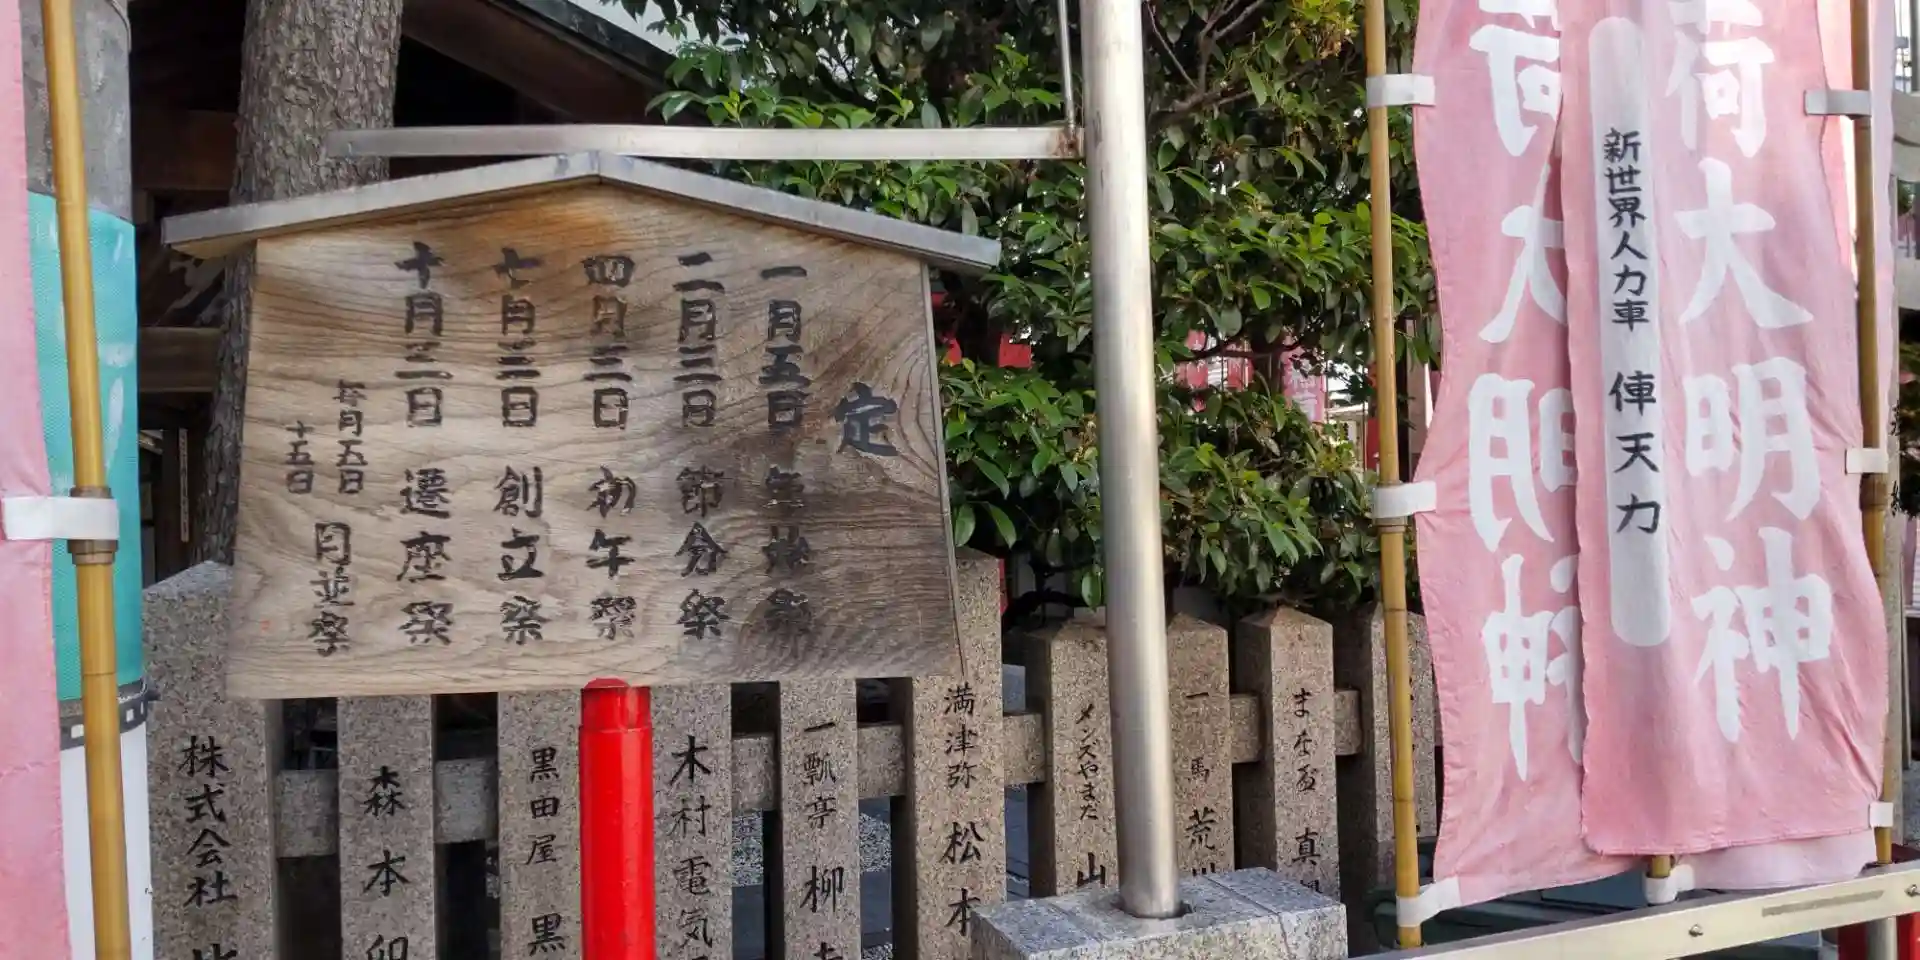 定
一月五日 年始祭
二月三日 節分祭
四月三日 初午祭
七月三日 創立祭
十月三日 遷座祭
毎月五日
十五日
月並祭
荷大明神
新世界人力車 俥天力
荷大明神
株式会社
森本卯
黒田屋 黒
木村電気
一瓢亭 柳
満津弥 松本
メンズやまだ 山
一馬 荒川
真